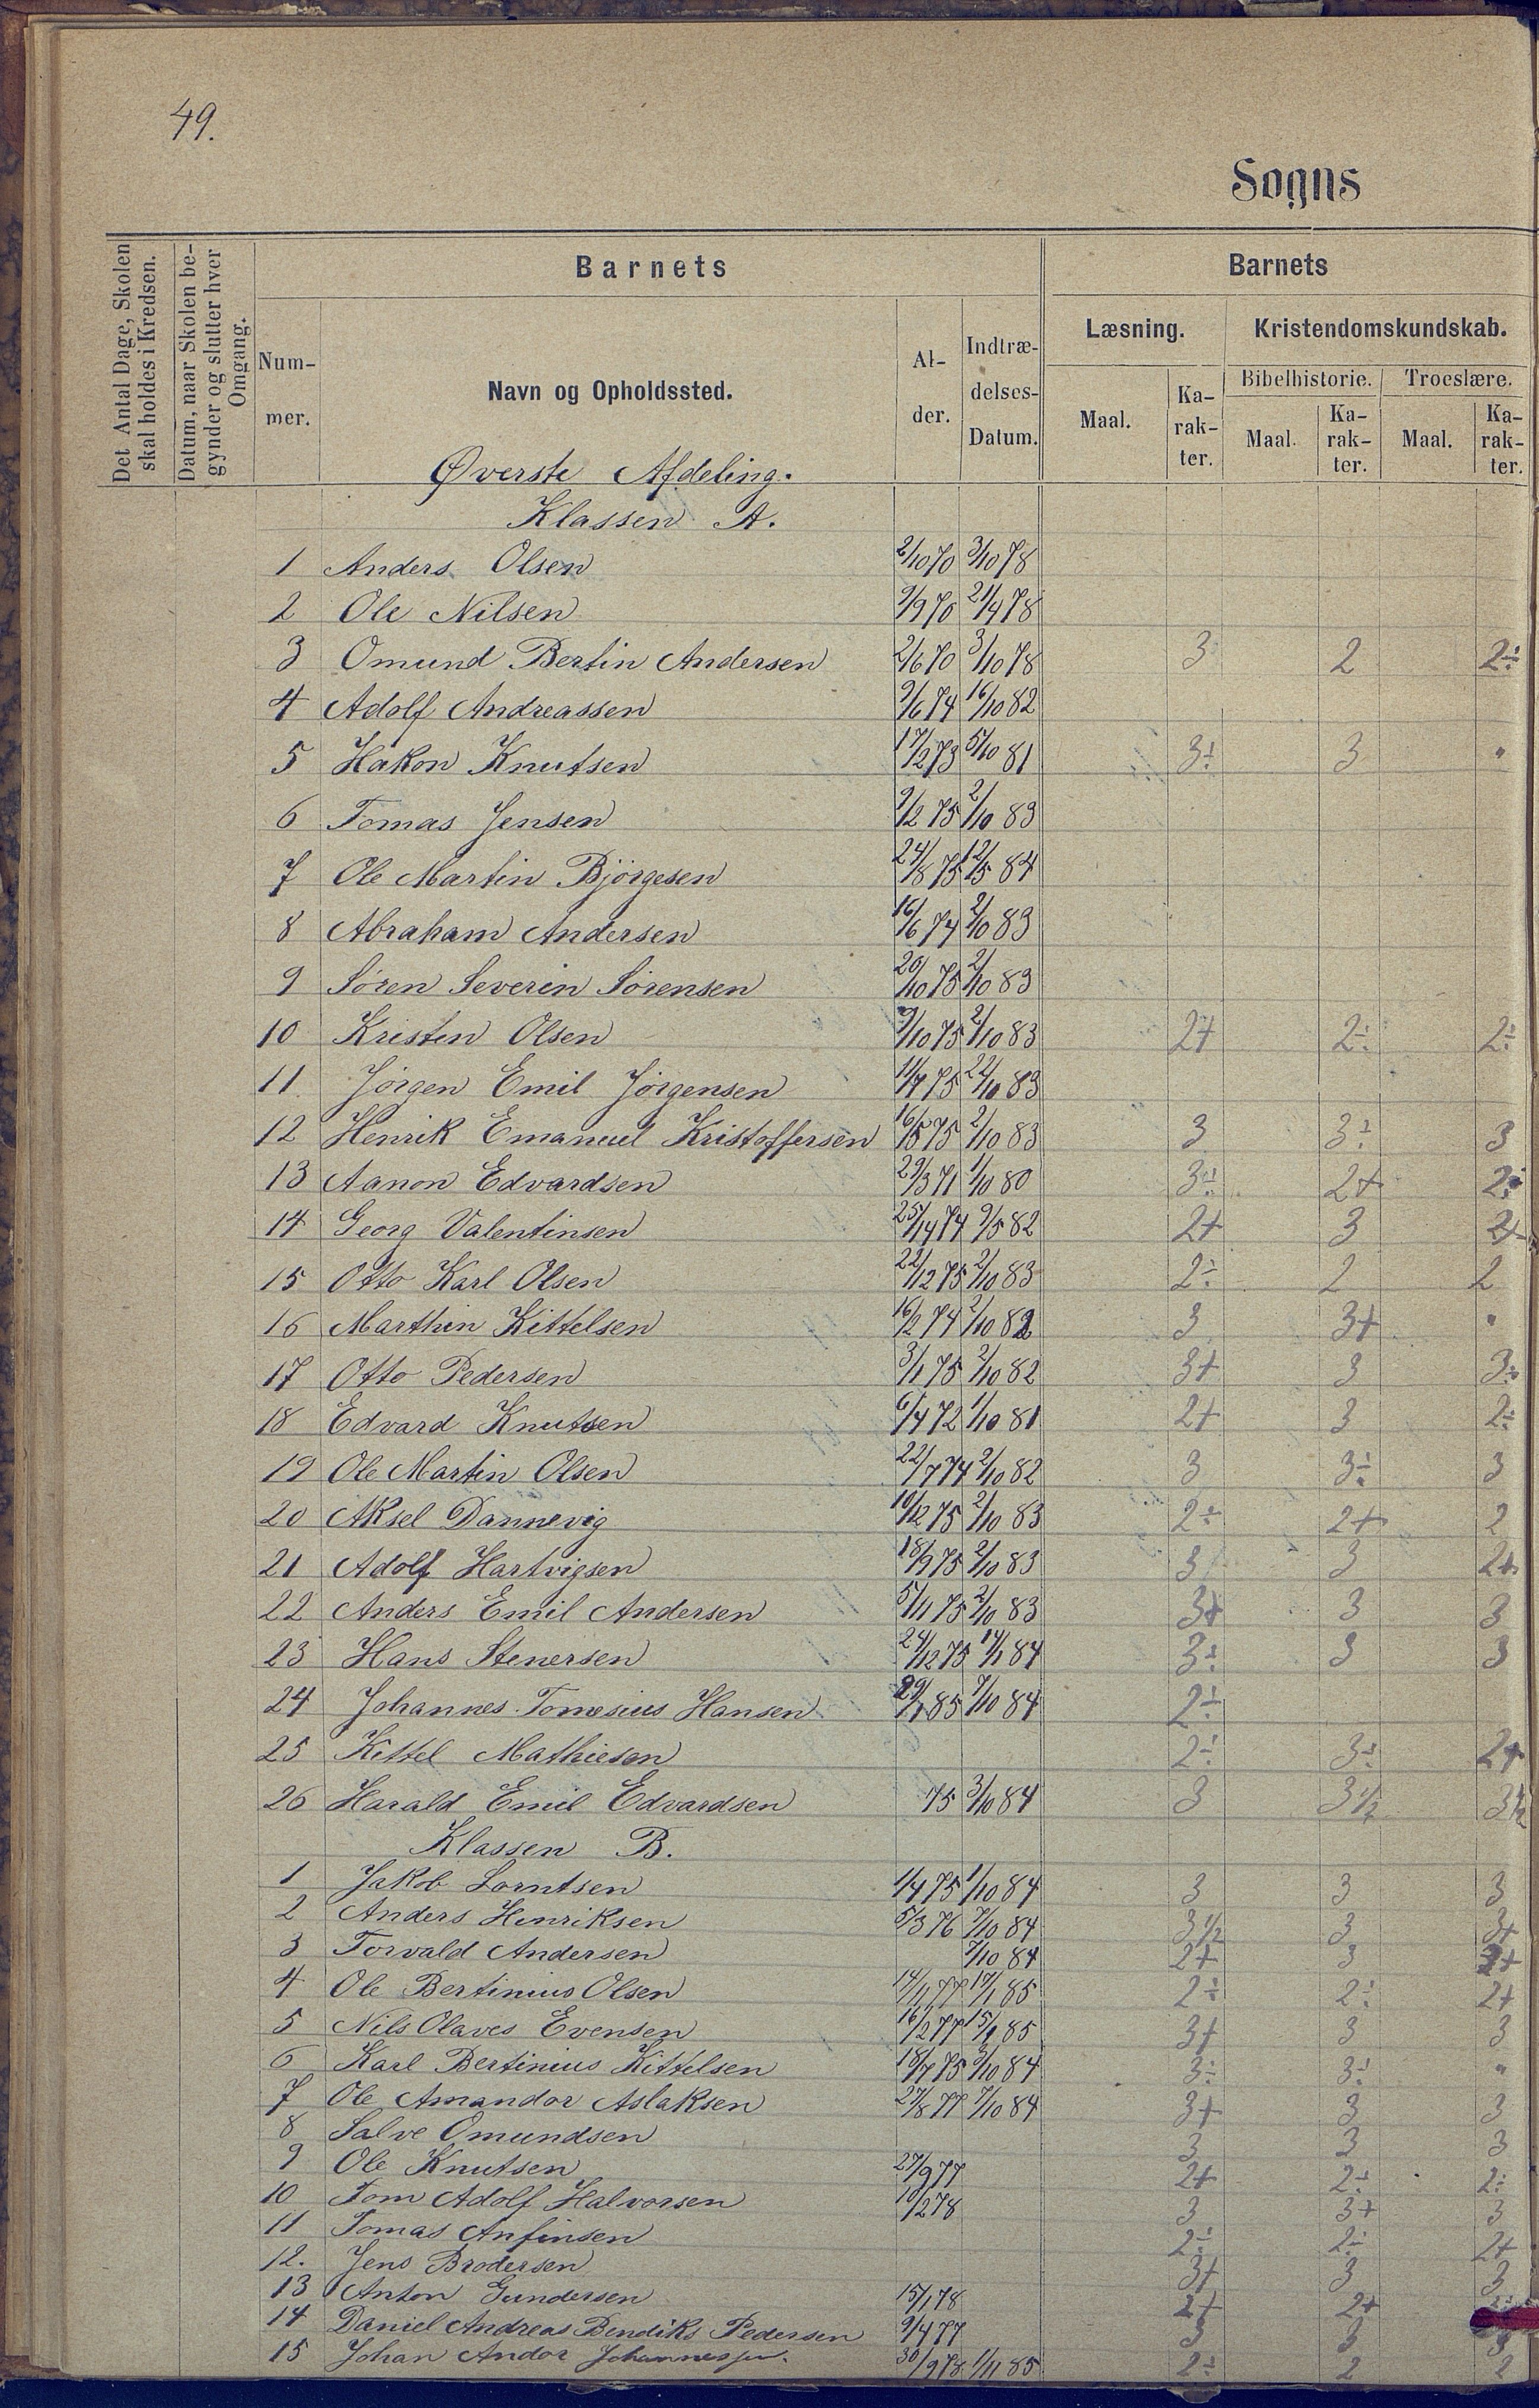 49.
Sogns
Det Antal Dage, Skolen skal holdes i Kredsen.
Datum, naar Skolen begynder og slutter hver Omgang.
Barnets
Barnets
Nummer.
Navn og Opholdssted.
Alder.
Indtrædelses-Datum.
Læsning.
Kristendomskundskab.
Bibelhistorie.
Troeslære.
Maal.
Karakter.
Maal.
Karakter.
Maal.
Karakter.
Øverste Afdeling.
Klassen A.
1 Anders Olsen 2/10 70 3/10 78
2 Ole Nilsen 9/9 70 21/9 78
3 Omund Bertin Andersen 2/6 70 3/10 78 3 2 2÷
4 Adolf Andreassen 9/6 74 16/10 82
5 Hakon Knutsen 17/2 73 5/10 81 3÷ 3 "
6 Tomas Jensen 9/2 75 2/10 83
7 Ole Martin Bjørgesen 24/8 75 12/5 84
8 Abraham Andersen 16/6 74 2/10 83
9 Søren Severin Sørensen 20/10 75 2/10 83
10 Kristen Olsen 9/10 75 2/10 83 2+ 2÷ 2÷
11 Jørgen Emil Jørgensen 11/7 75 22/10 83
12 Henrik Emanuel Kristoffersen 16/5 75 2/10 83 3 3÷ 3
13 Aanon Edvardsen 29/3 71 1/10 80 3÷ 2+ 2÷
14 Georg Valentinsen 74 9/5 82 2+ 3 2+
15 Otto Karl Olsen 22/12 75 2/10 83 2÷ 2 2
16 Marthin Kittelsen 16/2 74 2/10 82 3 3+ "
17 Otto Pedersen 3/1 75 2/10 82 3+ 3 3÷
18 Edvard Knutsen 6/4 72 1/10 81 2+ 3 2÷
19 Ole Martin Olsen 22/7 74 2/10 82 3 3÷ 3
20 Aksel Dannevig 10/12 75 2/10 83 2÷ 2+ 2
21 Adolf Hartvigsen 18/9 75 2/10 83 3 3 2+
22 Anders Emil Andersen 5/11 75 2/10 83 3+ 3 3
23 Hans Stenersen 24/12 75 14/1 84 3÷ 3 3
24 Johannes Tomesius Hansen 85 7/10 84 2÷
25 Kittel Mathiesen 2÷ 3÷ 2+
26 Harald Emil Edvardsen 75 3/10 84 3 3½ 3½
Klassen B.
1 Jakob Lorntsen 1/4 75 1/10 84 3 3 3
2 Anders Henriksen 5/3 76 7/10 84 3½ 3 3+
3 Torvald Andersen 7/10 84 2+ 3 2+
4 Ole Bertinius Olsen 14/1 77 17/1 85 2÷ 2÷ 2+
5 Nils Olaves Evensen 16/2 77 85 3+ 3 3
6 Karl Bertinius Kittelsen 18/7 75 84 3÷ 3÷ "
7 Ole Amandor Aslaksen 27/8 77 7/10 84 3+ 3 3
8 Salve Omundsen 3 3 3
9 Ole Knutsen 27/9 77 2+ 2÷ 2÷
10 Tom Adolf Halvorsen 10/2 78 3 3+ 3
11 Tomas Anfinsen 2÷ 2÷ 2+
12. Jens Brodersen 3+ 3 3
13 Anton Gundersen 15/1 78 2+ 2+
14 Daniel Andreas Bendiks Pedersen 9/4 77 3 3 3
15 Johan Andor Johannessen. 30/9 78 1/11 85 2÷ 2 2